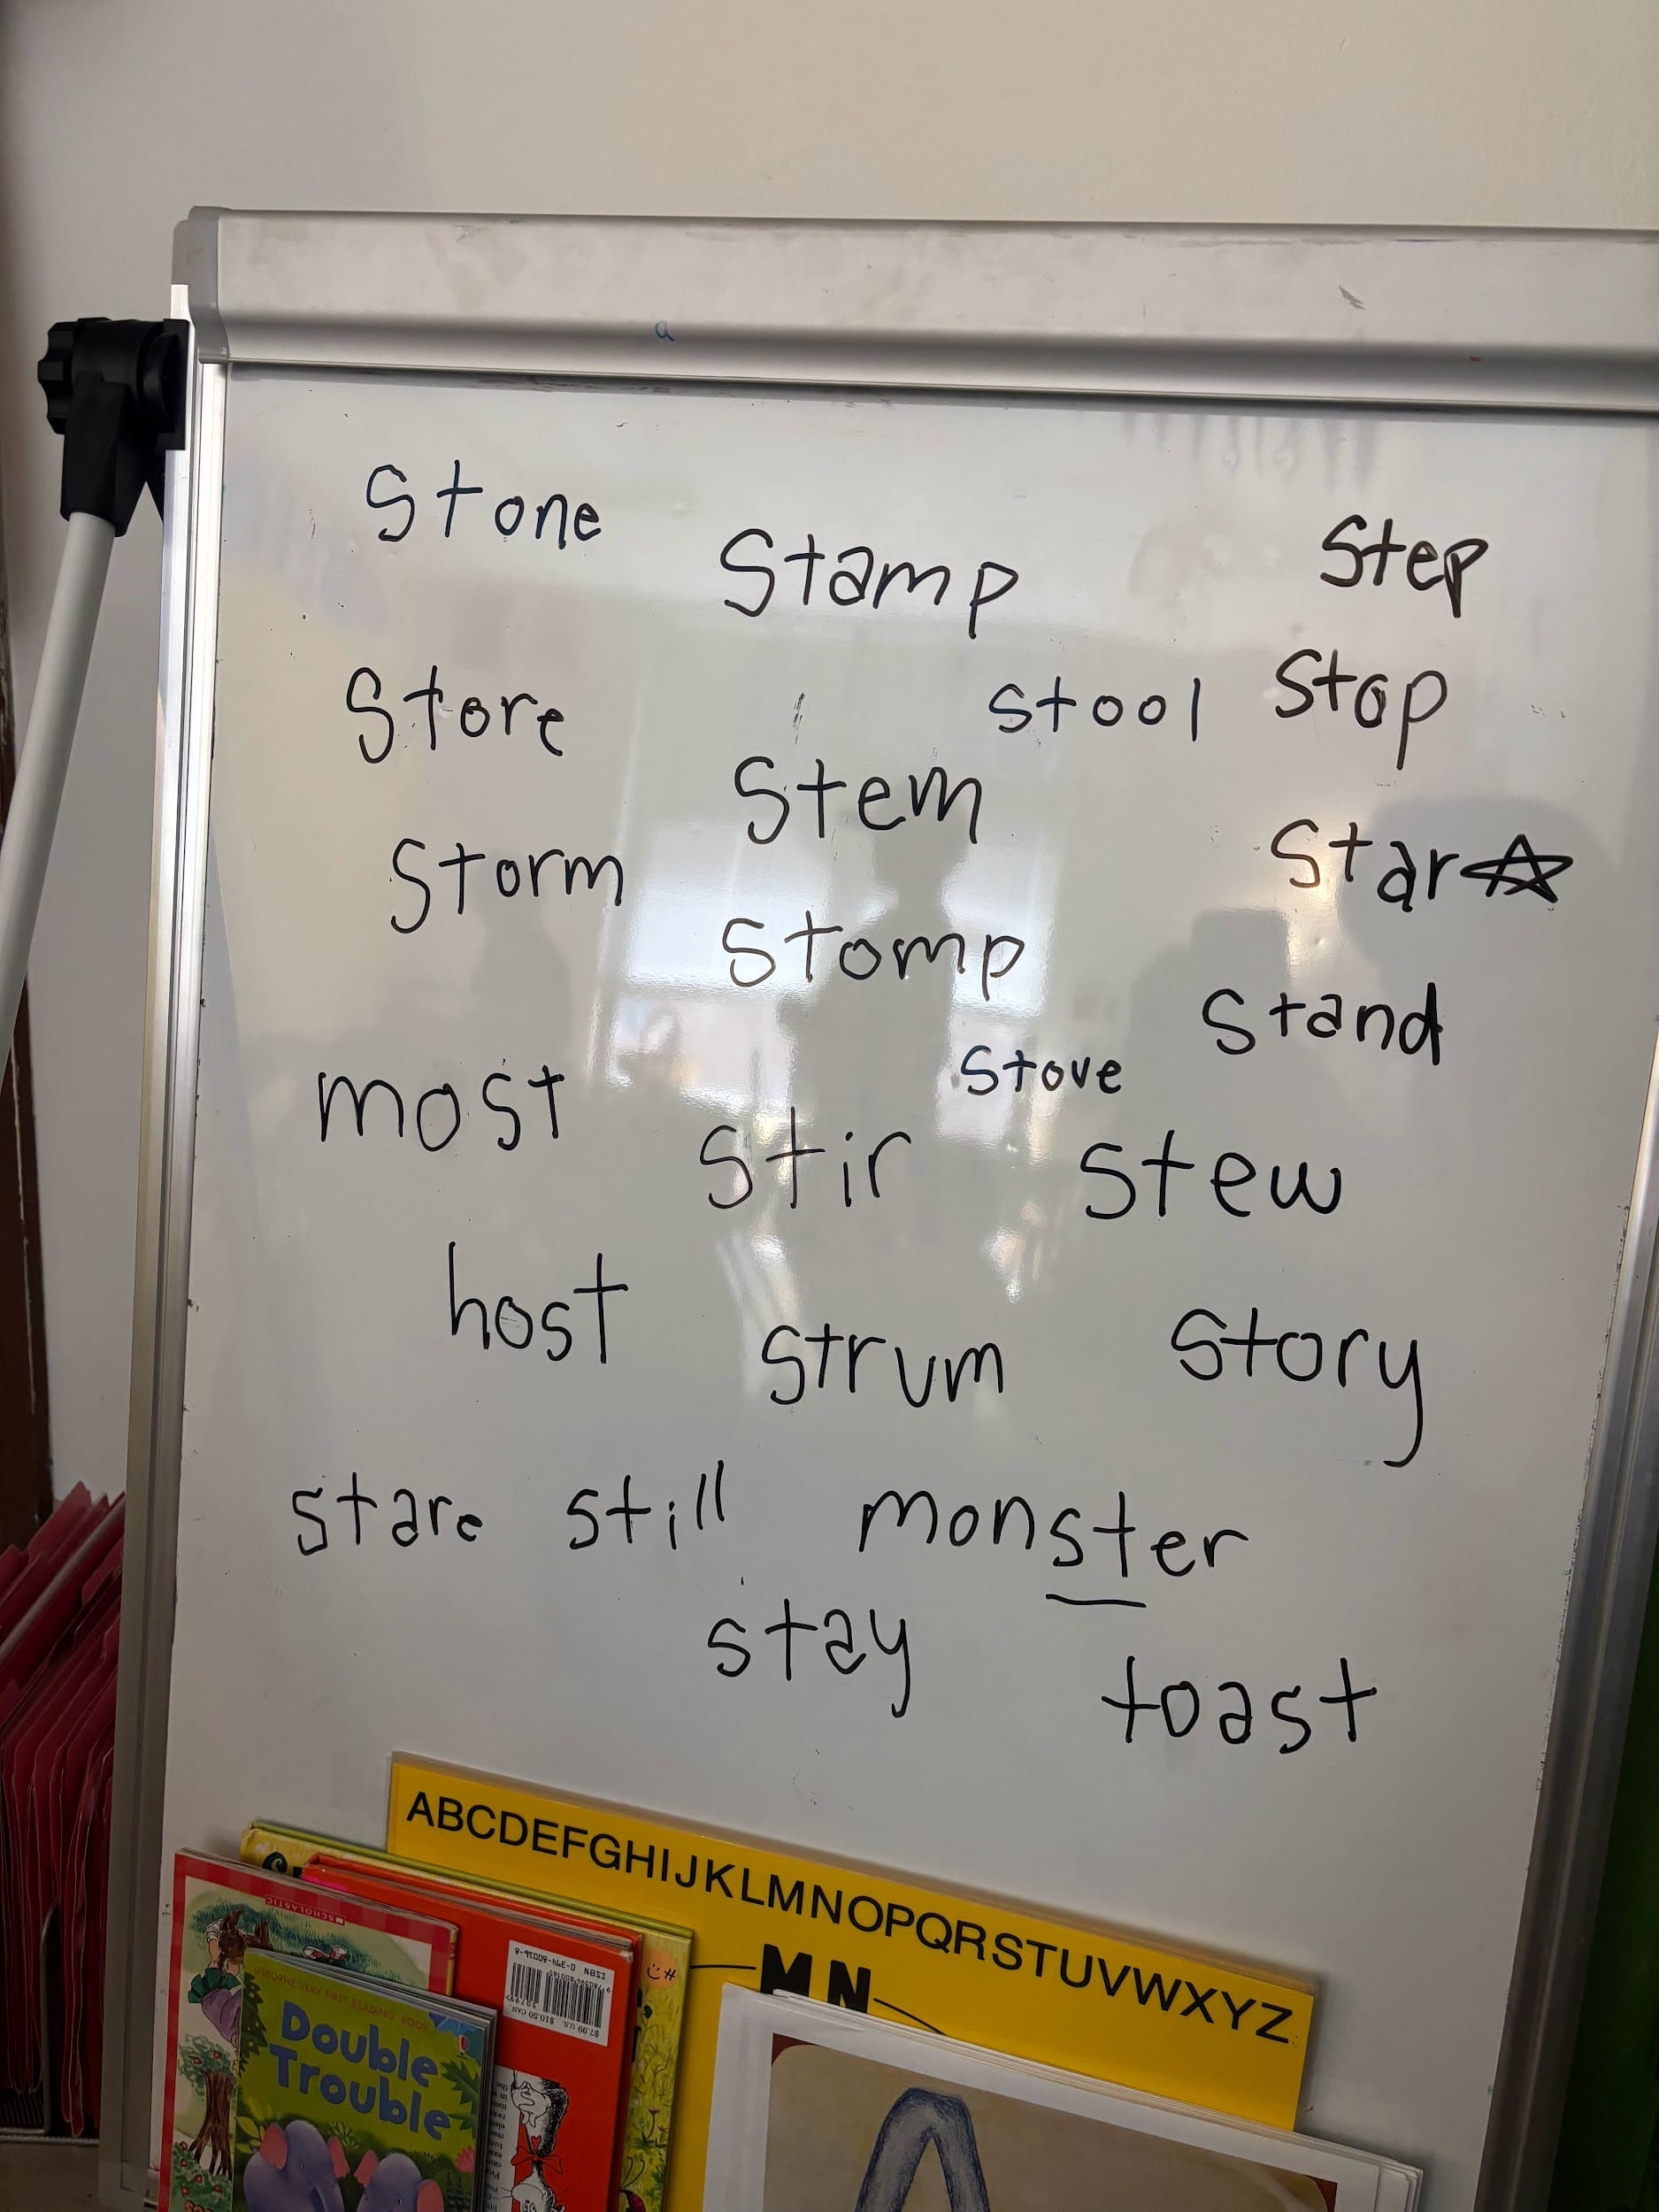 a
stone
stamp
step
store
stool
stop
stem
storm
star
stomp
stand
stove
most
stir
stew
host
strum
story
stare
still
monster
stay
toast
ABCDEFGHIJKLMNOPQRSTUVWXYZ
MN
SCHOLASTIC
ISBN 0-394-80016-8
$7.99 U.S. $10.50 CAN
USBORNE VERY FIRST READING BOOK
Double
Trouble